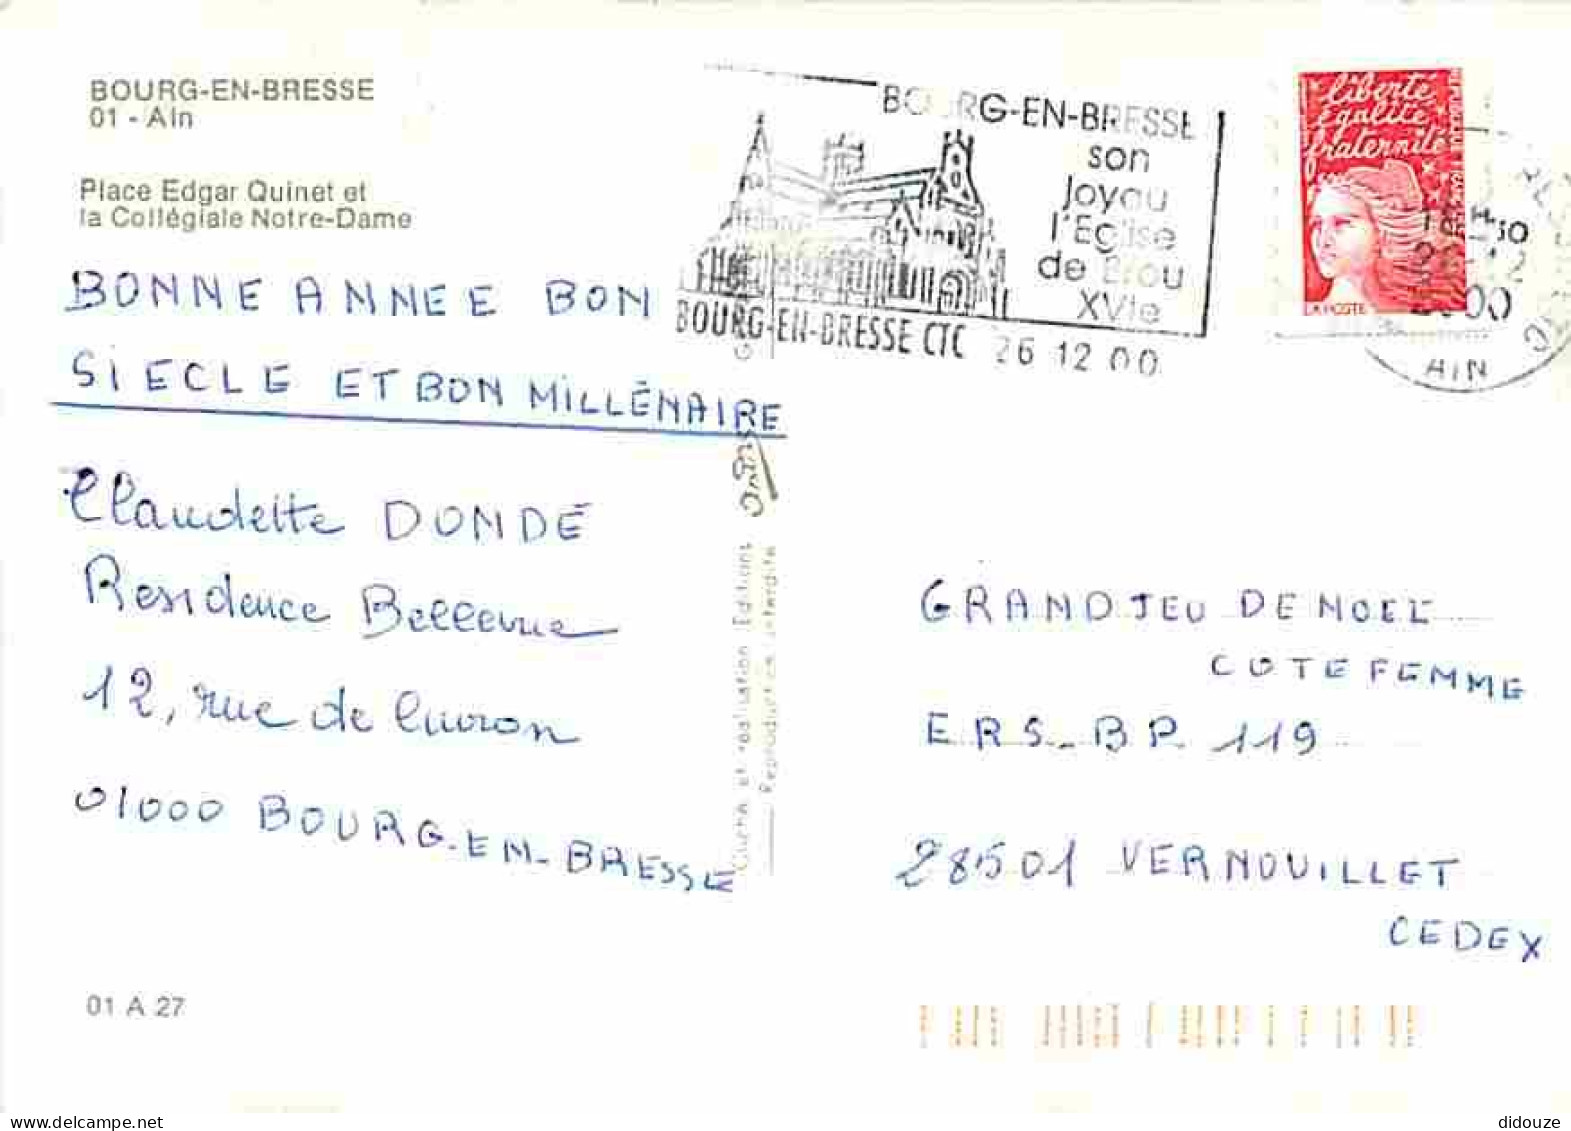 BOURG-EN-BRESSE
01 - Ain
Place Edgar Quinet et
la Collégiale Notre-Dame
BONNE ANNEE BON
SIECLE ET BON MILLÉNAIRE
Claudette DONDÉ
Residence Bellevue
12, rue de Curon
01000 BOURG-EN-BRESSE
01 A 27
Cliché et réalisation Editions
Reproduction interdite
BOURG-EN-BRESSE
son
Joyau
l'Eglise
de Brou
XVIe
BOURG-EN-BRESSE CTC 26 12 00
liberté
égalité
fraternité
LA POSTE
AIN
GRAND JEU DE NOEL
COTE FEMME
ERS-BP 119
28501 VERNOUILLET
CEDEX
delcampe.net
didouze